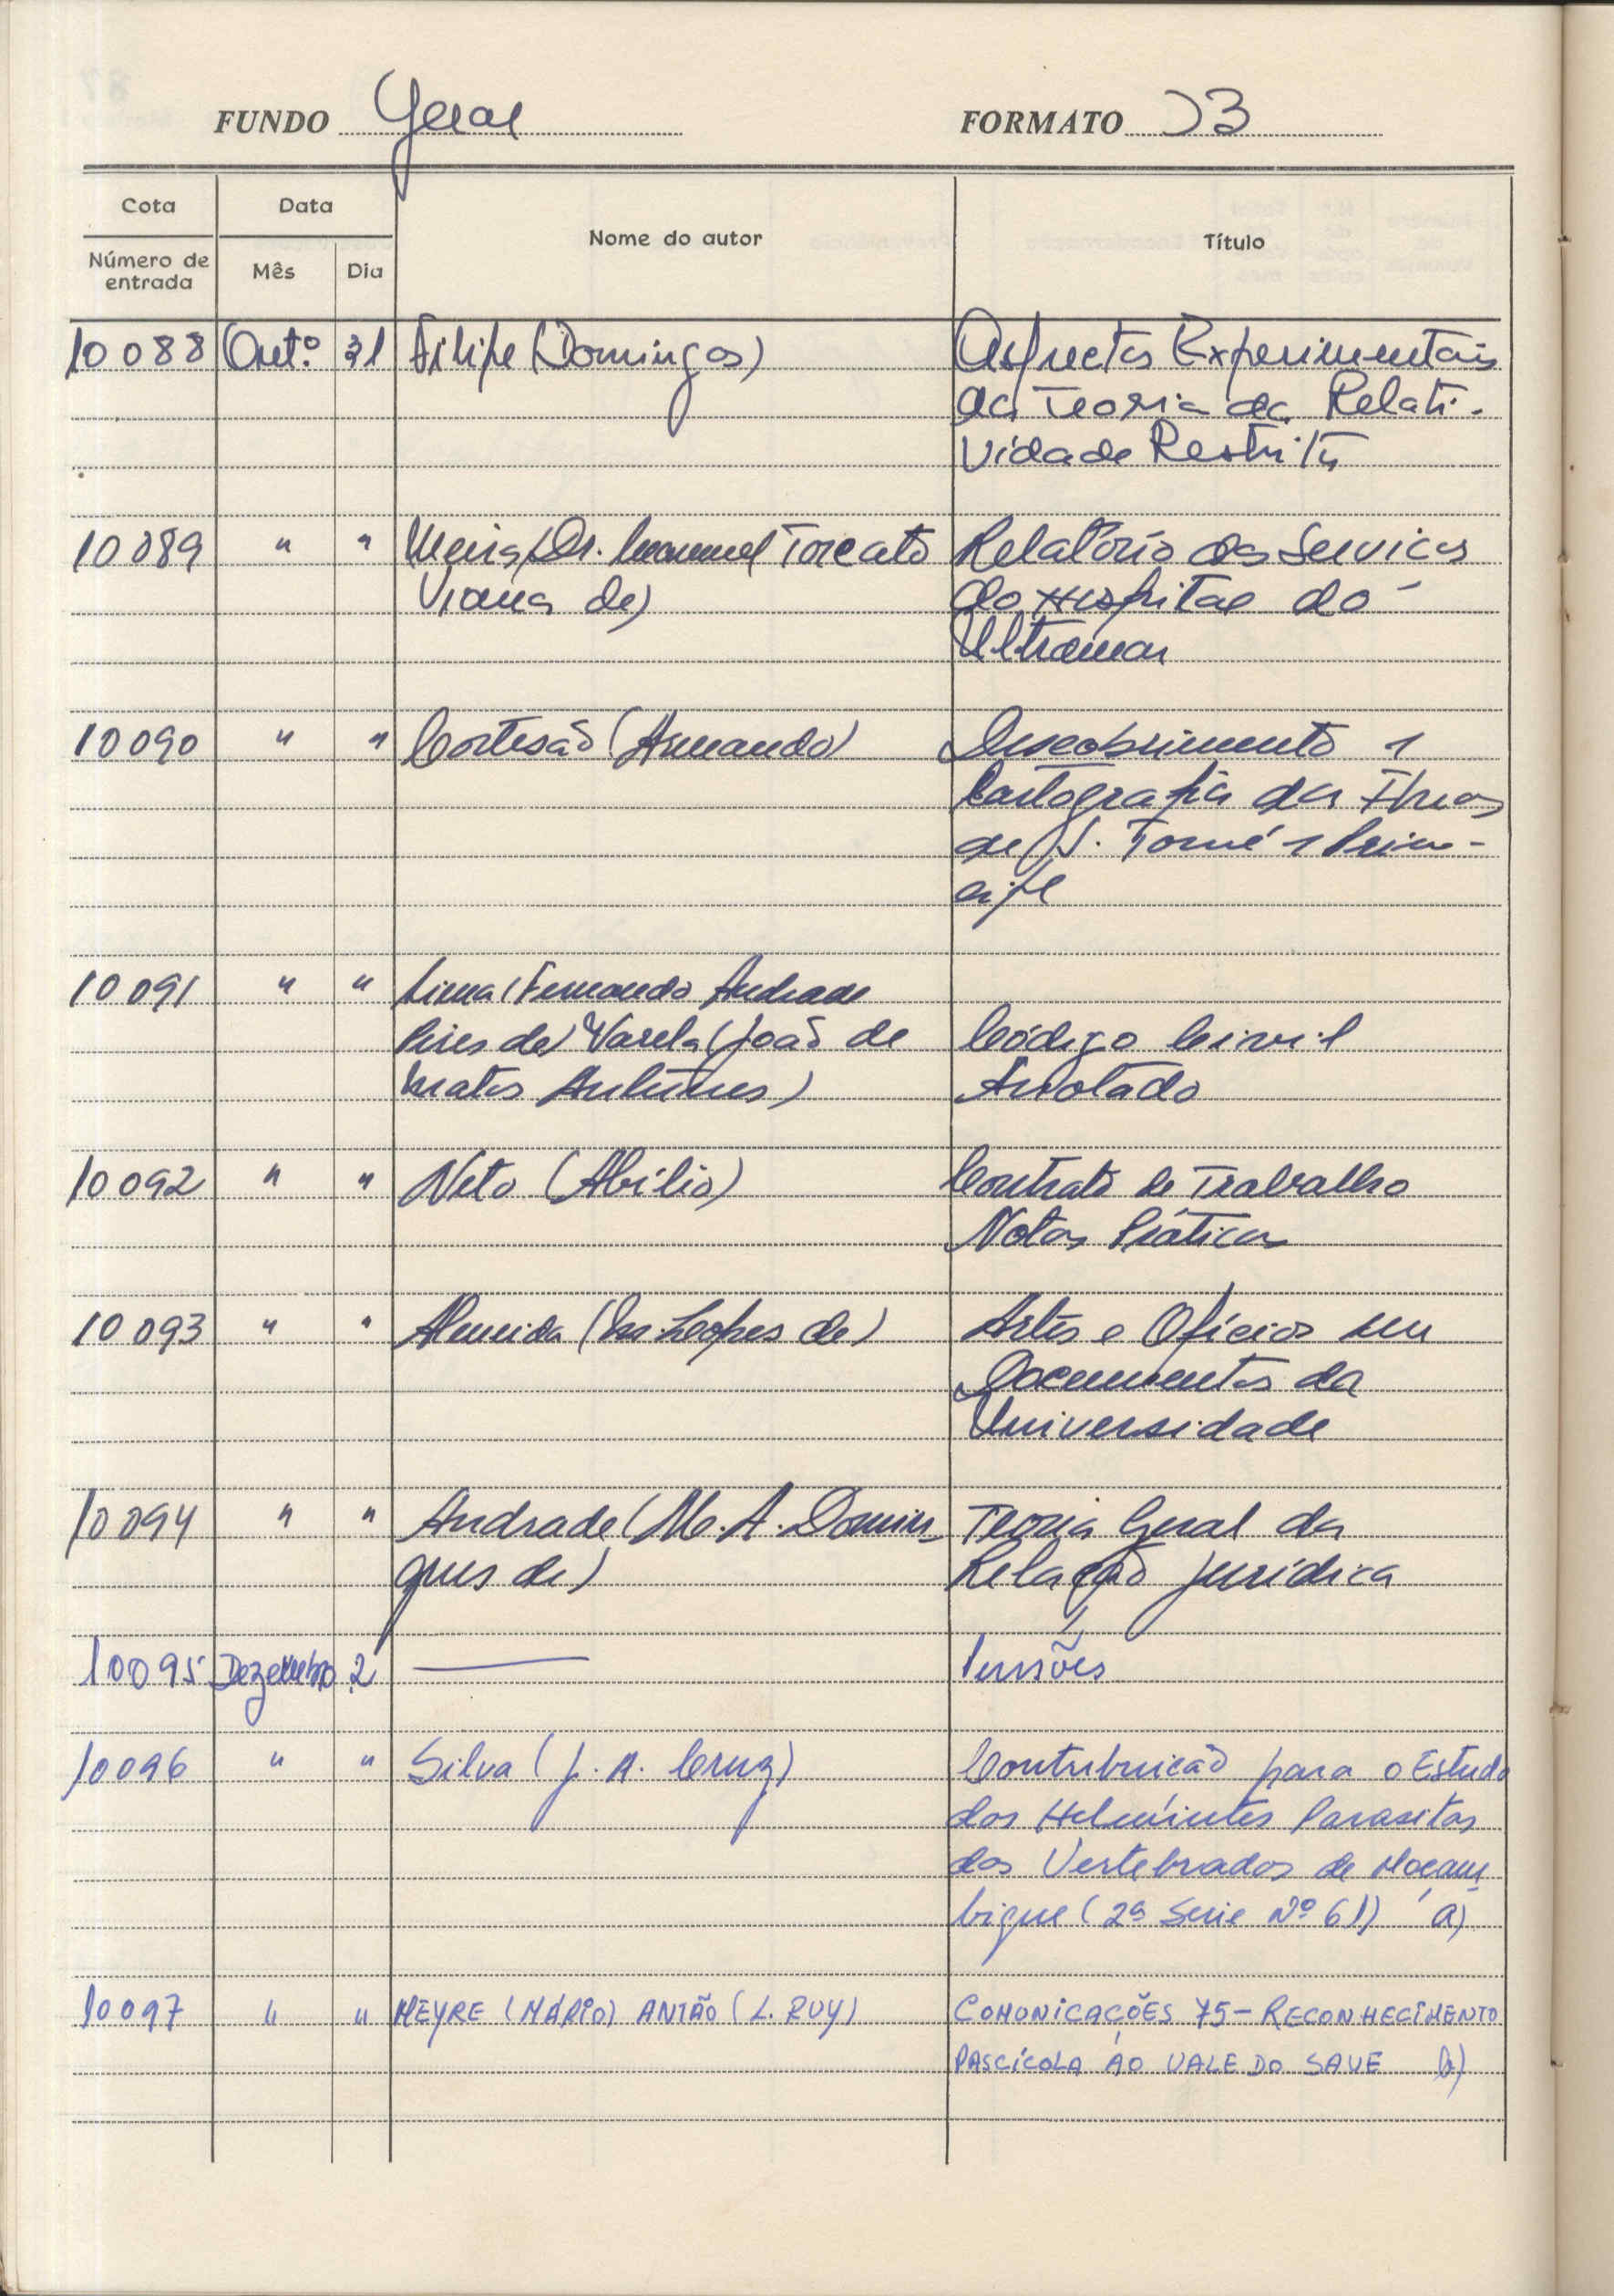 FUNDO Geral FORMATO J3
Cota Data Nome do autor Título
Número de entrada Mês Dia
10088 Outº. 31 Filipe (Domingos) Aspectos Experimentais
da Teoria da Relati-
vidade Restrita
10089 " " Meira (Dr. Manuel Torcato Relatório dos Serviços
Viana de) do Hospital do
Ultramar
10090 " " Cortesão (Armando) Descobrimento e
Cartografia das Ilhas
de S. Tomé e Prin-
cipe
10091 " " Lima (Fernando Andrade
Pires de) Varela (João de Código Civil
Matos Antunes) Anotado
10092 " " Neto (Abílio) Contrato de Trabalho
Notas Práticas
10093 " " Almeida ( Lopes de) Artes e Ofícios em
Documentos da
Universidade
10094 " " Andrade (M. A. Domin- Teoria Geral da
gues de) Relação Jurídica
10095 Dezembro 2 ——— Pensões
10096 " " Silva (J. A. Cruz) Contribuição para o Estudo
dos Helmintes Parasitas
dos Vertebrados de Moçam
bique (2ª Serie Nº 61) a)
10097 " " MEYRE (MÁRIO) ANTÃO (L. RUY) COMUNICAÇÕES 75 - RECONHECIMENTO
PASCÍCOLA AO VALE DO SAVE b)